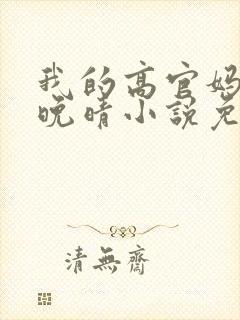 我的高官妈
晚晴小说免
清無齋